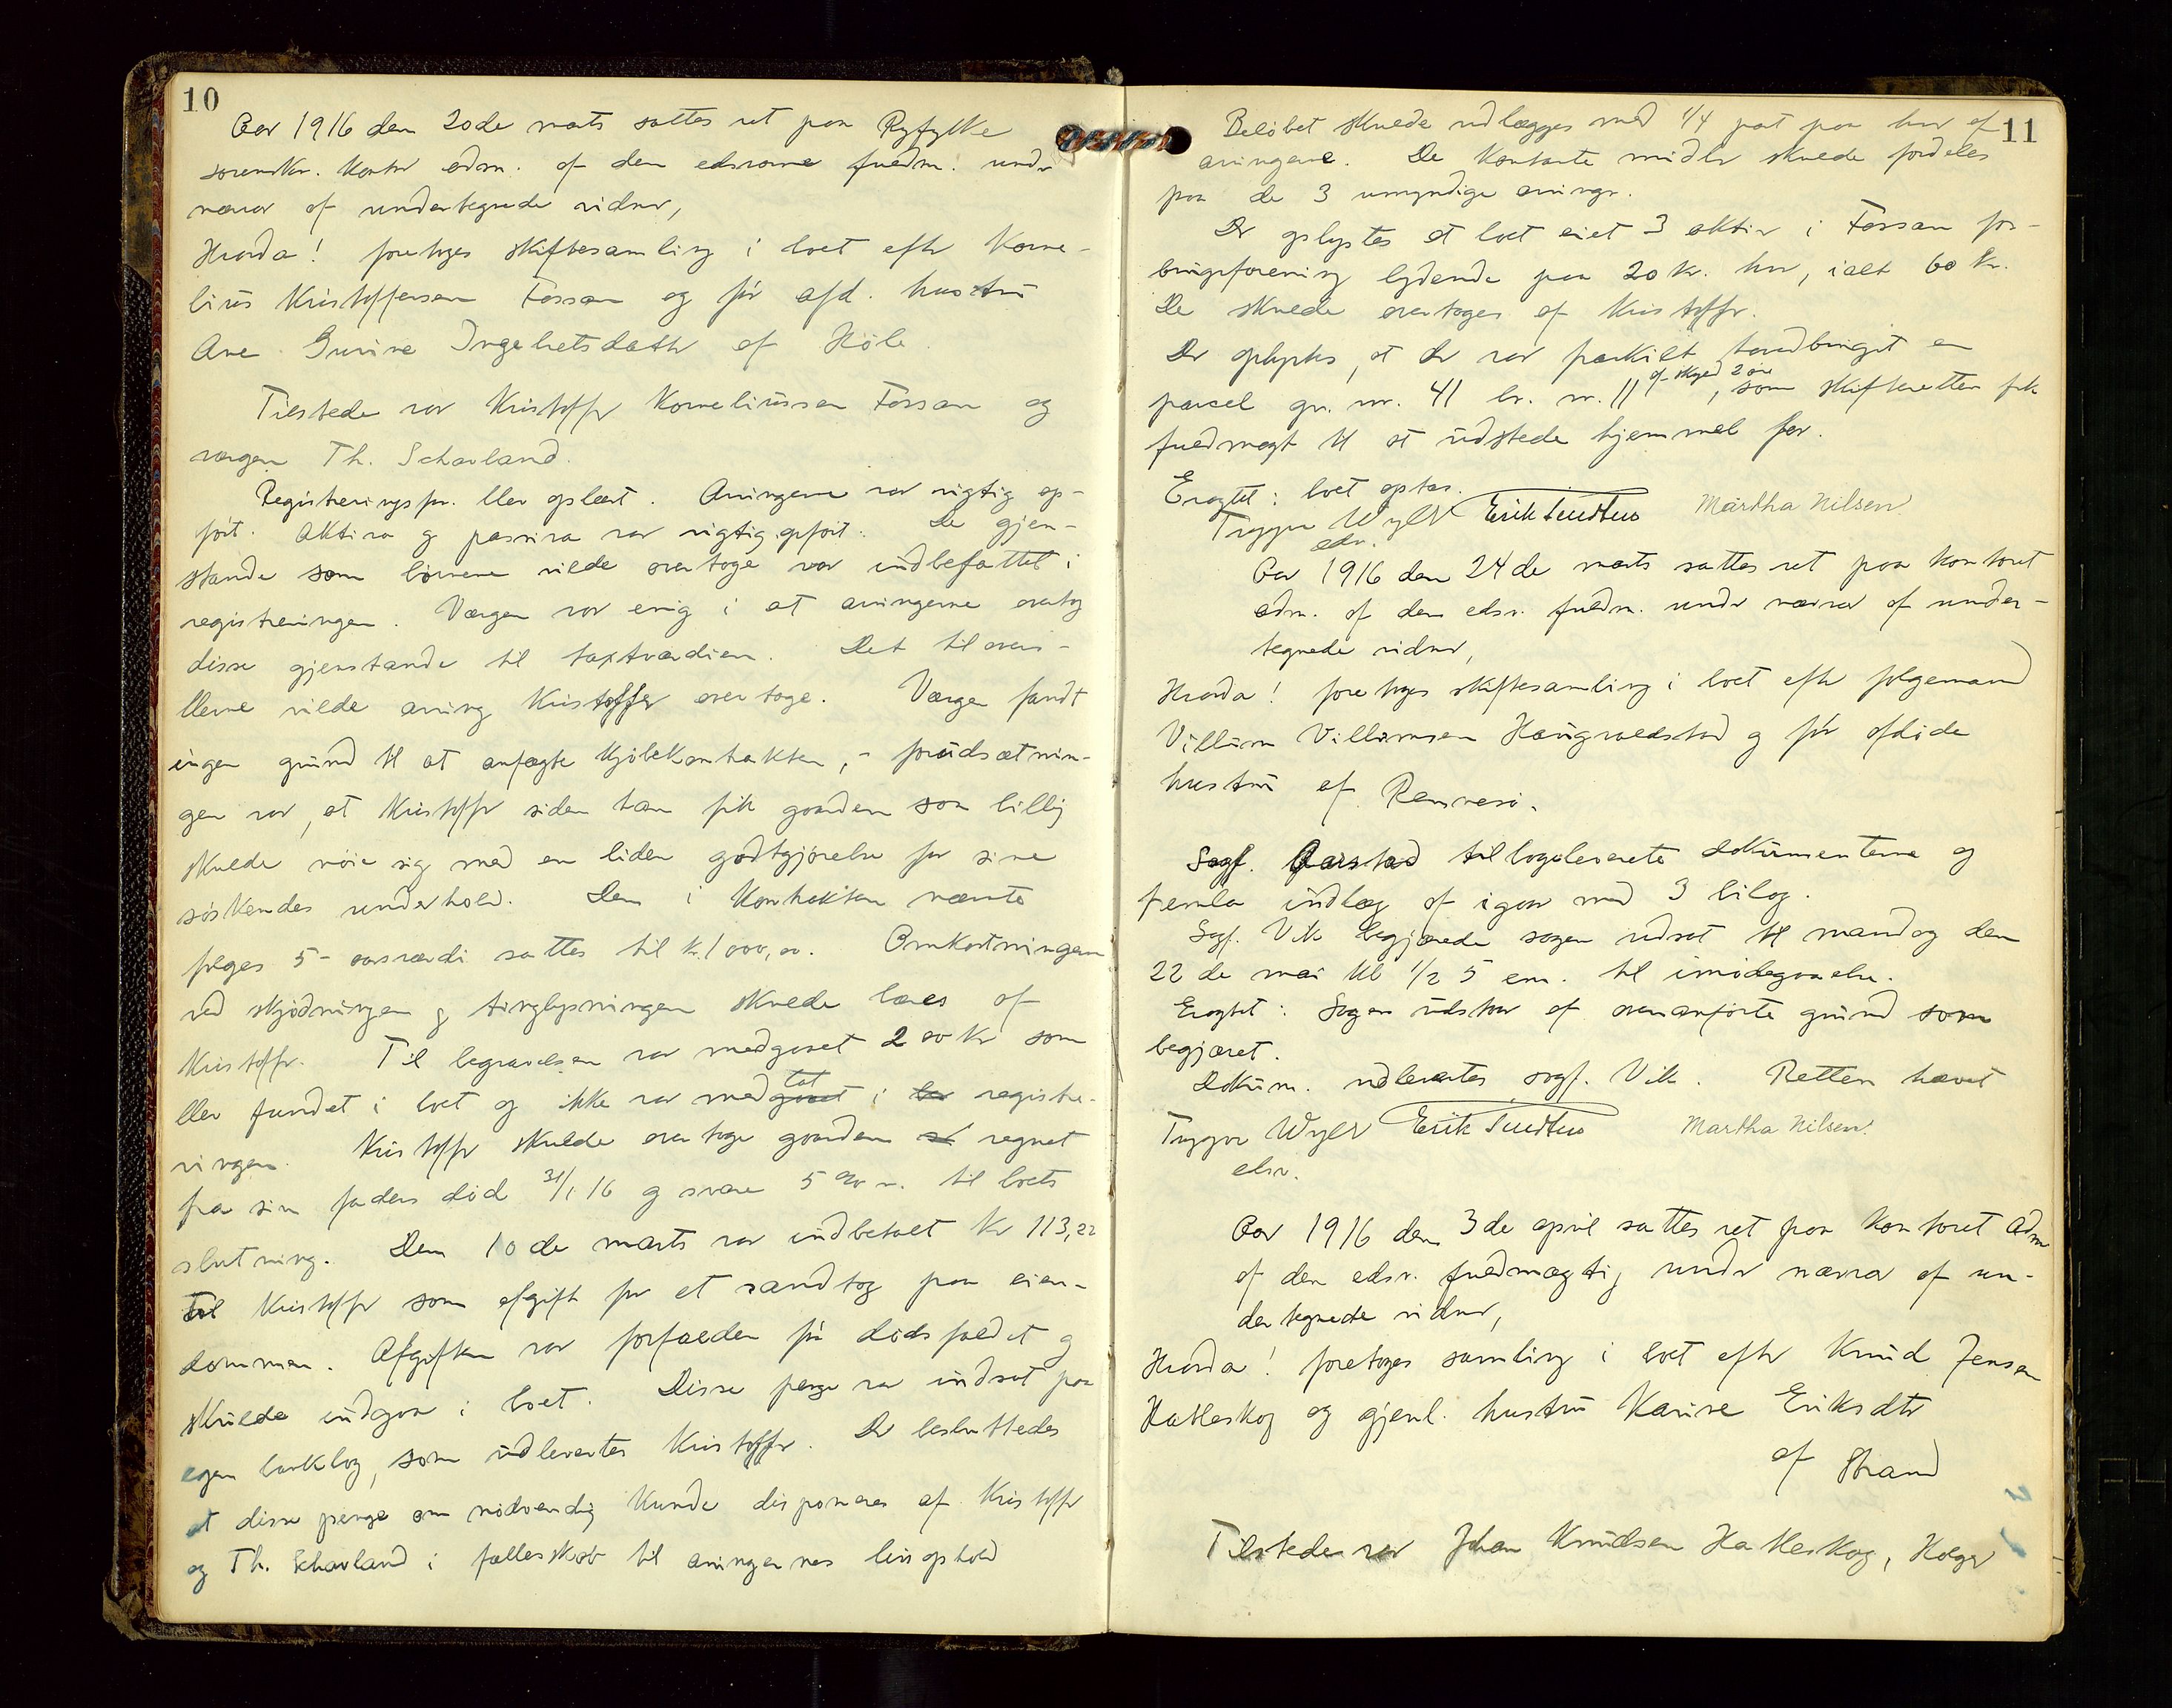 10
Aar 1916 den 20de marts sattes ret paa Ryfylke
sorenskr. kontor adm. af den edsvorne fuldm. under
nærvær af undertegnede vidner,
Hvorda! foretoges skiftesamling i boet efter Korne-
lius Kristoffersen Fossan og før afd. hustru
Ane Gurine Ingebretsdatter af Höle.
Tilstede var Kristoffer Korneliussen Fossan og
vergen Th. Schavland.
Registreringsfor. blev oplæst. Arvingerne var rigtig op-
ført. Aktiva og passiva var rigtig opført. De gjen-
stande som börnene vilde overtage var indbefattet i
registreringen. Værgen var enig i at arvingerne overtog
disse gjenstande til taxtværdien. Det tilovers-
blevne vilde arving Kristoffer overtage. Værgen fandt
ingen grund til at anfægte kjöbekontrakten, - forudsætnin-
gen var, at Kristoffer siden han fik gaarden saa billig
skulde nöie sig med en liden godtgjörelse for sine
söskendes underhold. Den i kontrakten nævnte
følges 5-aarsværdi sattes til kr. 1000,00. Omkostningerne
ved skjödningen og tinglysningen skulde bæres af
Kristoffer. Til begravelsen var medgaaet 200 kr som
blev fundet i boet og ikke var medtat i registre-
ringen. Kristoffer skulde overtage gaarden regnet
fra sin faders död 31/1 16 og svare 5% r. til boets
slutning. Den 10de marts var indbetalt kr 113,22
til Kristoffer som afgift for et sandtag paa eien-
dommen. Afgiften var forfalden før dödsfaldet og
skulde indgaa i boet. Disse penge var indsat paa
egen bankbog, som udlevertes Kristoffer. Det besluttedes
at disse penge om nödvendig kunde disponeres af Kristoffer
og Th. Schavland i fællesskab til arvingernes livsophold
11
Belöbet skulde udlægges med 1/4 part paa hver af
arvingerne. De kontante midler skulde fordeles
paa de 3 umyndige arvinger.
Der oplystes at boet eiet 3 aktier i Fossan for-
brugsforening lydende paa 20 kr. hver, ialt 60 kr.
De skulde overtages af Kristoffer.
Der oplystes, at der var fraskilt hovedbruget en
parcel gr. nr. 41 br. nr. 11 af skyld 2 øre, som skifteretten fik
fuldmagt til at udstede hjemmel for.
Eragtet: boet optas.
Trygve Wyller Erik Sundtus Martha Nilsen
edsv.
Aar 1916 den 24de marts sattes ret paa kontoret
adm. af den edsv. fuldm. under nærvær af under-
tegnede vidner,
Hvorda! foretoges skiftesamling i boet efter følgemand
Villum Villumsen Haugvaldstad og før afdöde
hustru af Rennesö.
Sagf. Aarstad tilbageleverete dokumenterne og
fremla indlæg af igaar med 3 bilag.
Sagf. Vik begjærede sagen udsat til mandag den
22de mai kl 1/2 5 em. til imödegaaelse.
Eragtet: Sagen udstaar af ovenanførte grund som
begjæret.
Dokum. udlevertes sagf. Vik. Retten hævet
Trygve Wyller Erik Sundtus Martha Nilsen.
edsv.
Aar 1916 den 3de april sattes ret paa kontoret adm
af den edsv. fuldmægtig under nærvær af un-
dertegnede vidner,
Hvorda! foretoges samling i boet efter Knud Jensen
Hatleskog og gjenl. hustru Karine Eriksdtr
af Strand
Tilstede var Johan Knudsen Hatleskog, Holger